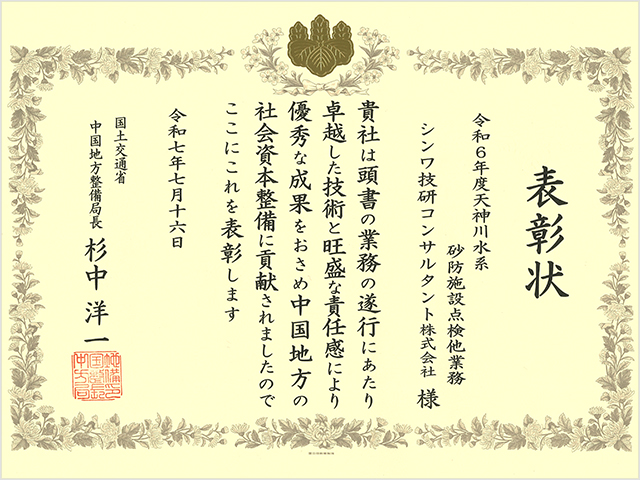 表彰状
令和６年度天神川水系
砂防施設点検他業務
シンワ技研コンサルタント株式会社 様
貴社は頭書の業務の遂行にあたり
卓越した技術と旺盛な責任感により
優秀な成果をおさめ中国地方の
社会資本整備に貢献されましたので
ここにこれを表彰します
令和七年七月十六日
国土交通省
中国地方整備局長 杉中洋一